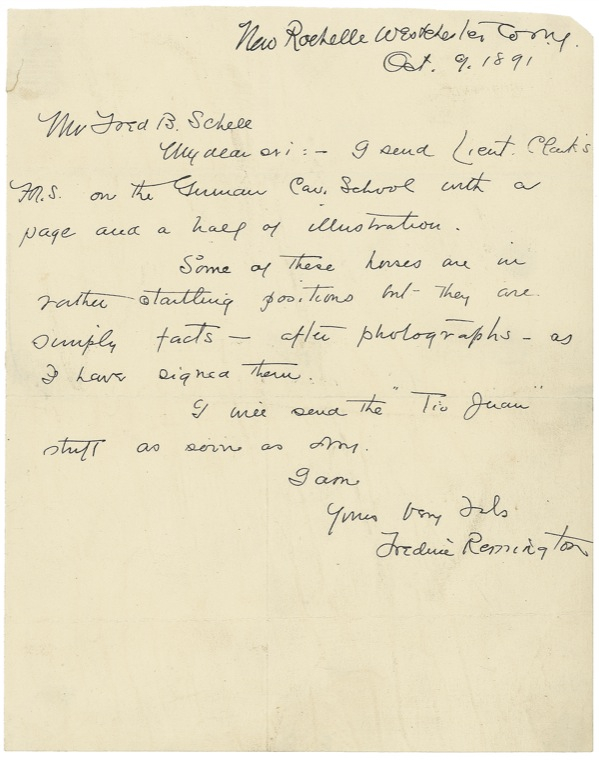 New Rochelle Westchester Co. N.Y.
Oct. 9. 1891
Mr Fred B. Schell
My dear sir : - I send Lieut. Clark's
M.S. on the German Cav. School with a
page and a half of illustration.
Some of these horses are in
rather startling positions but they are
simply facts — after photographs - as
I have signed them.
I will send the "Tio Juan"
stuff as soon as dry.
I am
Yours Very Truly
Frederic Remington